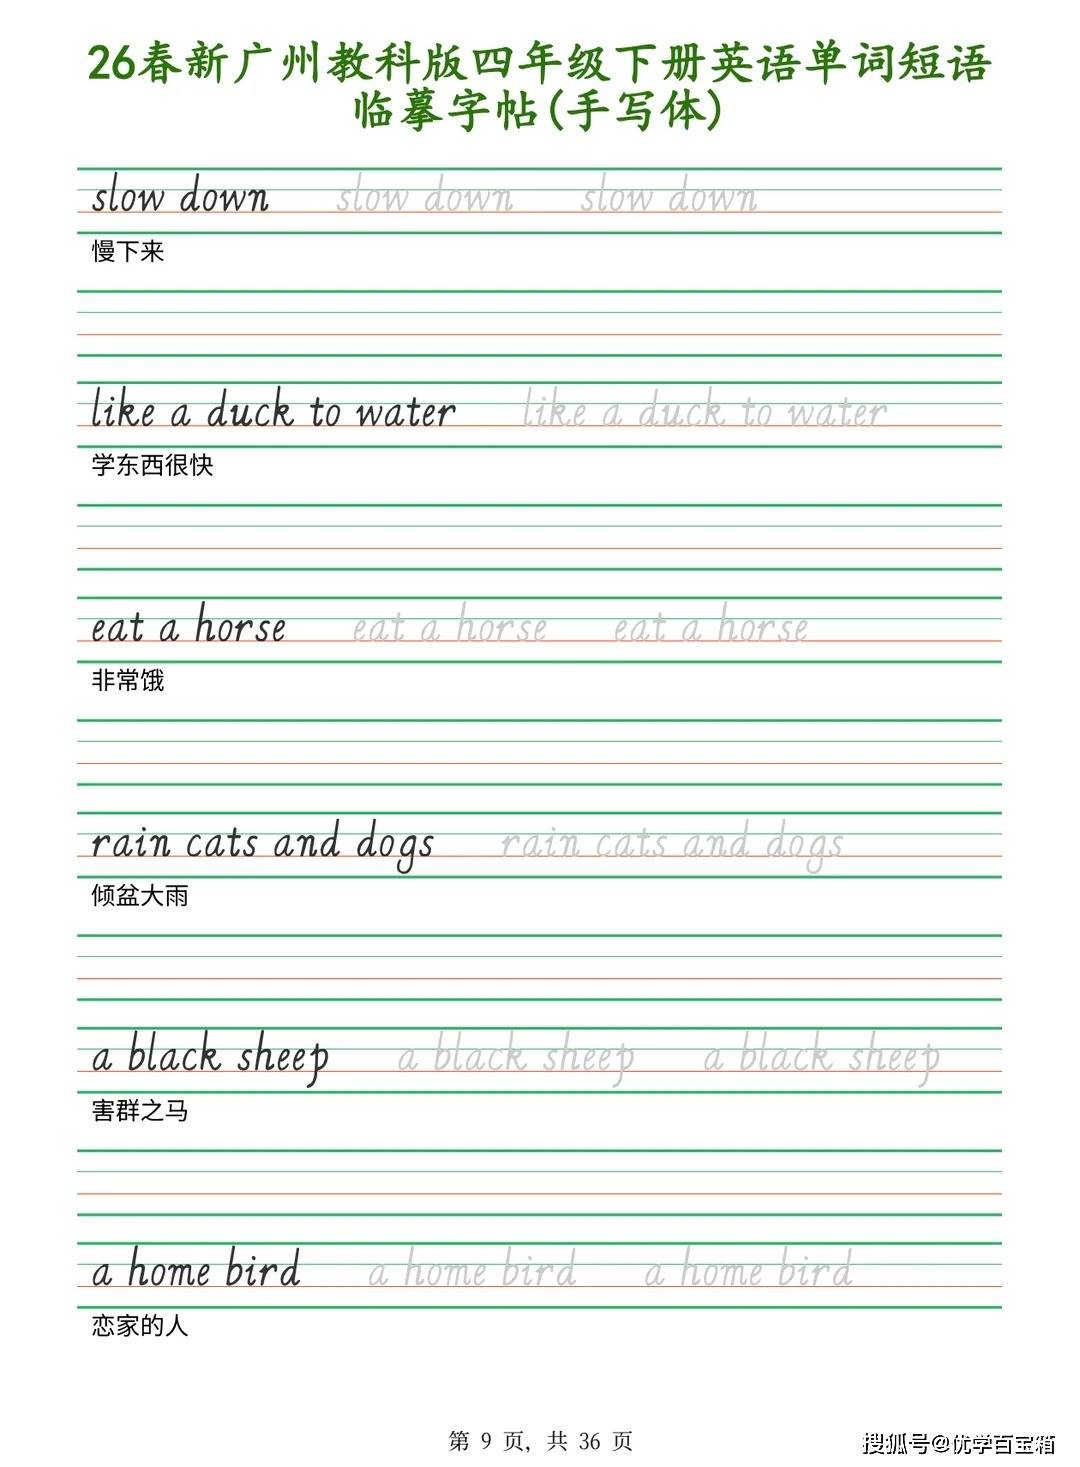 26春新广州教科版四年级下册英语单词短语
临摹字帖(手写体)
slow down slow down slow down
慢下来
like a duck to water like a duck to water
学东西很快
eat a horse eat a horse eat a horse
非常饿
rain cats and dogs rain cats and dogs
倾盆大雨
a black sheep a black sheep a black sheep
害群之马
a home bird a home bird a home bird
恋家的人
第 9 页, 共 36 页
搜狐号@优学百宝箱